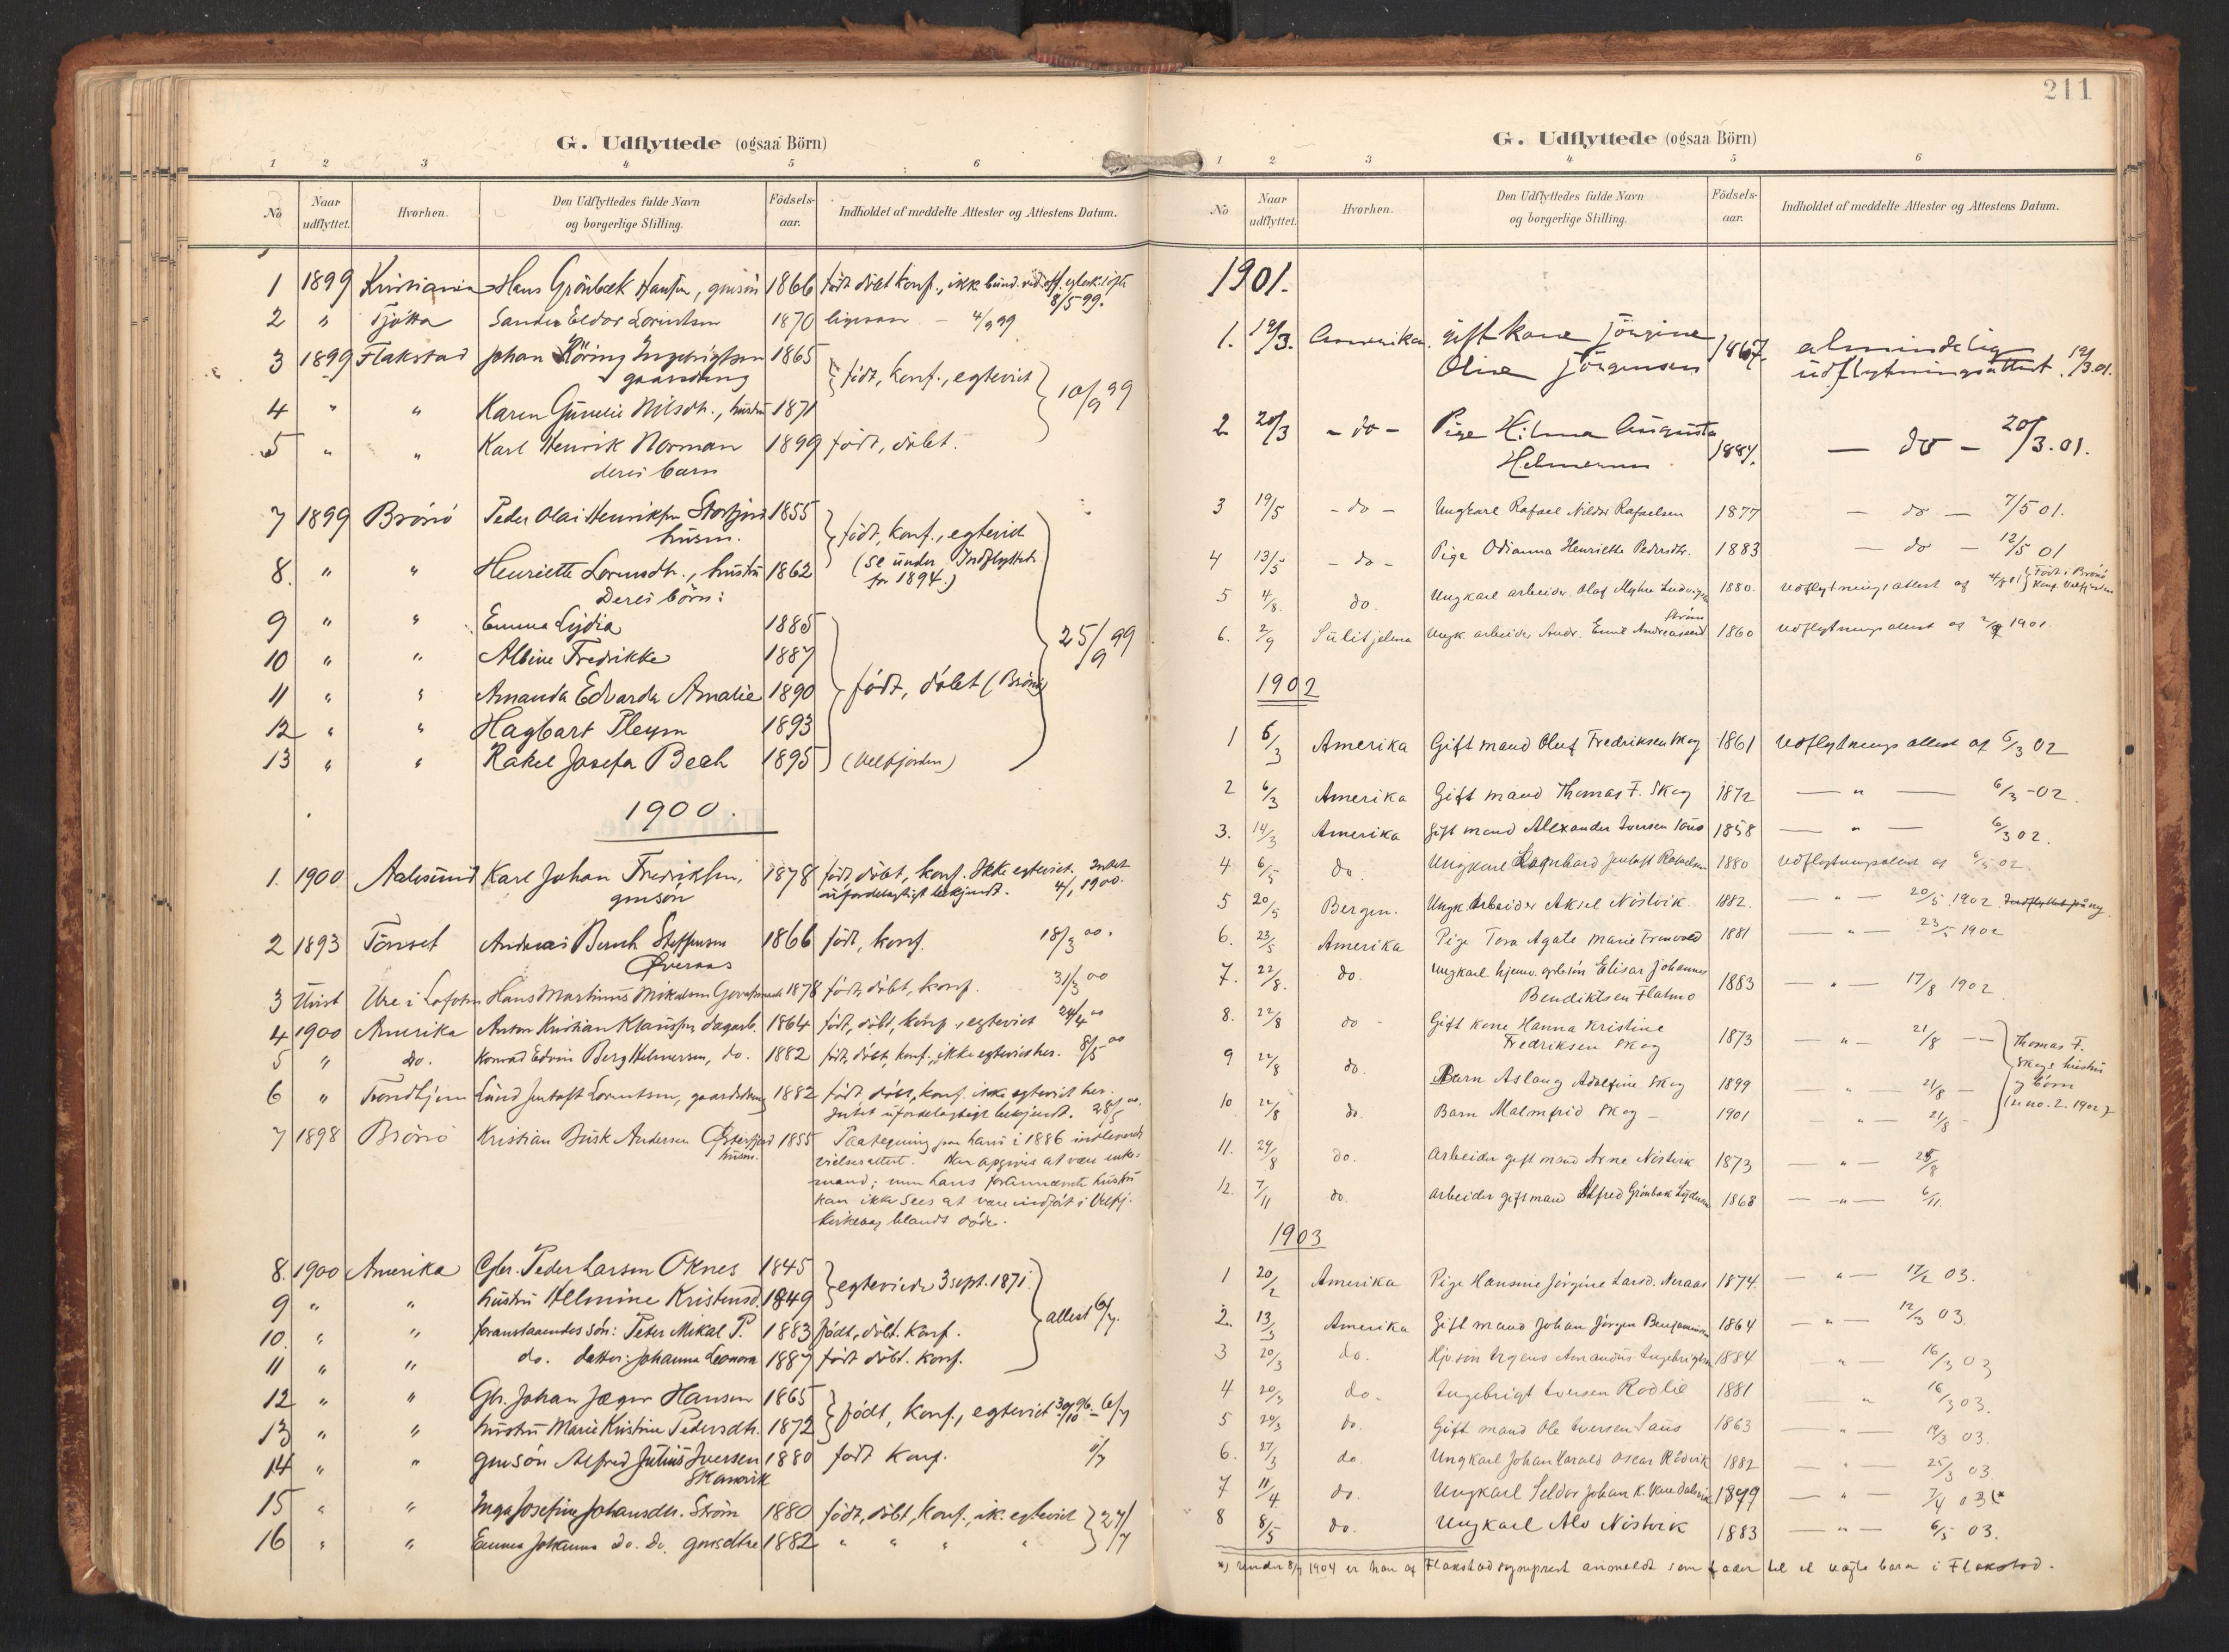 G. Udflyttede (ogsaa Börn)
1 2 3 4 5 6
No
Naar udflyttet.
Hvorhen.
Den Udflyttedes fulde Navn og borgerlige Stilling.
Födsels-aar.
Indholdet af meddelte Attester og Attestens Datum.
1 1899 Kristiania Hans Grönbæk Hansen, gmsön 1866 född döbt konf., ikke bund. ved
8/5 99.
2 " Tjötta Sander Eldor Lorentsen 1870 ligesaa — 4/9 99
3 1899 Flakstad Johan Höring Ingebrigtsen 1865
född, konf., egteviet 10/9 99
4 " " Karen Gunelie Nilsdtr., hustru 1871
5 " " Karl Henrik Norman 1899 född, döbt.
deres barn
7 1899 Brönö Peder Olai Henriksen Storfjord 1855
husm.
född, konf., egteviet
(se under Indflyttede
for 1894.)
8. " " Henriette Lorentsdtr., hustru 1862
Deres börn:
9 " " Emma Lydia 1885
10 " " Albine Fredrikke 1887
25/9 99
11 " " Amanda Edvarda Amalie 1890 född, döbt (Brönö)
12 " " Hagbart Pleym 1893
13 " " Rakel Josefa Bech 1895 (Velfjorden)
1900.
1. 1900 Aalesund Karl Johan Fredriksen, 1878 född döbt, konf. Ikke egteviet. Intet
gmsön ufordelagtigt bekjendt. 4/1 1900.
2 1893 Tönset Andreas Bernh Steffensen 1866 född, konf. 18/3 00.
Øveraas
3 Uvist Ure i Lofoten Hans Martinus Mikalsen 1878 född, döbt, konf. 31/3 00
4 1900 Amerika Anton Kristian Klausen dagarb. 1864 född, döbt, konf., egteviet 24/4 00
5 " do. Konrad Edvin Berg Helmersen, do. 1882 född, döbt, konf., ikke egteviet her. 8/5 00
6 " Trondhjem Lund Jentoft Lorentsen, gaardsdreng 1882 född döbt, konf. ikke egteviet her.
Intet ufordelagtigt bekjendt. 28/5 00.
7 1898 Brönö Kristian Busk Andersen Østerfjord 1855 Paategning paa hans i 1886 indleverede
husm. vielsesattest. Han opgives at være enke-
mand; men hans hustru
kan ikke sees at være indfört i Velfj.
kirkebog blandt döde.
8. 1900 Amerika Gbr. Peder Larsen Oknes 1845
egteviede 3 sept. 1871.
9 " " hustru Helmine Kristensd. 1849
attest 6/7.
10. " " foranstaaendes sön: Peter Mikal P. 1883 född, döbt. konf.
11 " " do. datter: Johanna Leonora 1887 född döbt. konf.
12 " " Gbr. Johan Jæger Hansen 1865
född, konf., egteviet 30/10 96. — 6/7
13 " " hustru Marie Kristine Pedersdtr. 1872
14 " " gmsön Alfred Julius Iversen 1880 född konf.
Skamvik
15 " " Inga Josefine Johansdtr. Ström 1880 född, döbt, konf., ik. egteviet 27/7
16 " " Emma Johanna do. do. gmsdtre 1882 " " " "
211
G. Udflyttede (ogsaa Börn)
1 2 3 4 5 6
No
Naar udflyttet.
Hvorhen.
Den Udflyttedes fulde Navn og borgerlige Stilling.
Födsels-aar.
Indholdet af meddelte Attester og Attestens Datum.
1901.
1. 12/3. Amerika. gift kone Jörgine 1867. almindelig
Oline Jörgensen udflytningsattest. 12/3.01.
2 20/3 - do - Pige Hilma Augusta 1884. — do — 20/3.01.
Helmersen
3 19/5 - do - Ungkarl Rafael Nilder Rafaelsen 1877 — do — 7/5 01.
4 13/5 - do - Pige Odianna Henriette Pedersdtr. 1883 — do — 12/5 01
5 4/8. do. Ungkarl arbeider. Olaf Myhre Ludvigsen 1880. Udflytningsattest af 4/8 01 Födt i Brönö
Ström Konf. Velfjorden
6. 2/9 Sulitjelma Ungk. arbeider Andr. Emil Andreassen 1860 Udflytningsattest af 2/9 1901.
1902
1 6/3 Amerika Gift mand Oluf Fredriksen Skog 1861 Udflytningsattest af 6/3 02
2 6/3 Amerika Gift mand Thomas F. Skog 1872 — " — 6/3 -02.
3. 14/3 Amerika Gift mand Alexander Iversen Saus 1858 — " — 6/3 02.
4 6/5 do. Ungkarl Ragnhard Jentoft Rafaelsen 1880 Udflytningsattest af 6/5 02
5 20/5 Bergen. Ungk. Arbeider Aksel Nöstvik. 1882. — " — 20/5 1902. Indflyttet paany
6. 23/5 Amerika Pige Tora Agate Marie Trenvold 1881 — " — 23/5 1902
7. 22/8. do. Ungkarl hjemv. grbsön Elisar Johannes 1883 — " — 17/8 1902
Bendiktsen Flatmo
8. 22/8 do - Gift kone Hanna Kristine 1873 — " — 21/8 — Thomas F.
Fredriksen Skog Skogs hustru
9 22/8 do. Barn Aslaug Adolfine Skog 1899 " 21/8 — og börn
10 22/8 do. Barn Malmfrid Skog — 1901 " — 21/8 — (se no. 2. 1902)
11. 29/8 do. Arbeider gift mand Arne Nöstvik 1873 — " — 25/8
12. 7/11 do. Arbeider gift mand Alfred Grönbæk 1868 — " — 6/11.
1903
1 20/2 Amerika Pige Hansine Jörgine Larsd. Neraas 1874. — " — 17/2 03.
2. 13/3 Amerika Gift mand Johan Jörgen Benjaminsen 1864 — " — 12/3 03.
3 20/3 do. Hjv. sön Amandus Ingebrigtsen 1884 " — 16/3 03
4 20/3 do. Ingebrigt Iversen Rodlie 1881 " 16/3 03.
5 20/3 do. Gift mand Ole Iversen Saus 1863 — " — 19/3 03.
6. 27/3 do. Ungkarl Johan Harald Oscar Rödvik 1882 — " — 25/3 03.
7 11/4 do. Ungkarl Seldor Johan K. 1879 — " — 7/4 03 (*
8 8/5 do. Ungkarl Alv Nöstvik 1883 — " — 6/5 03.
*) Under 8/7 1904 er han af Flakstad sogneprest anmeldt som fader til et uægte barn i Flakstad.